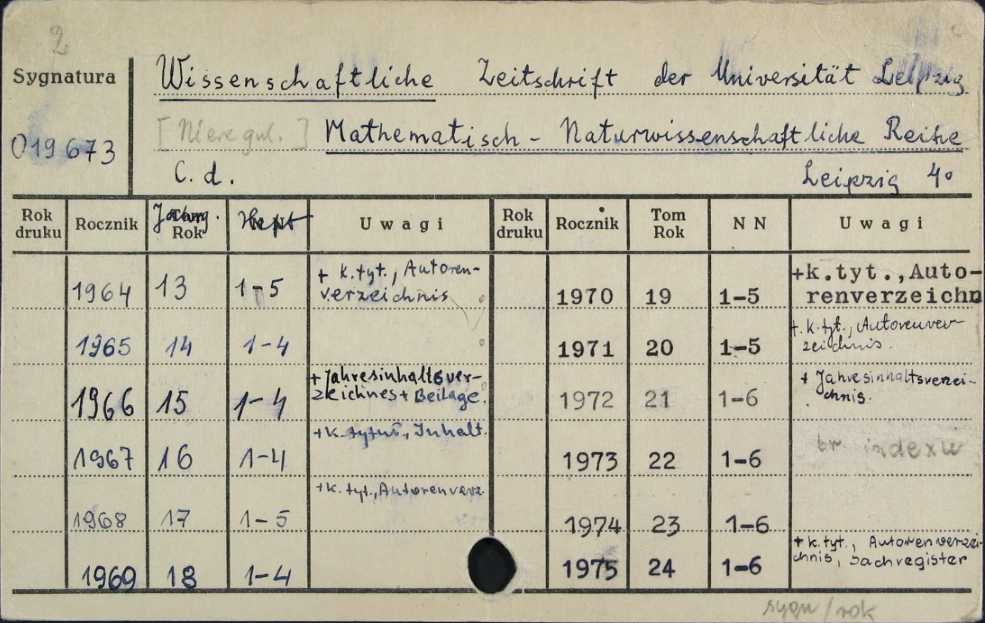 2
Sygnatura
019673
Wissenschaftliche Zeitschrift der Universität Leipzig
[Nieregul.] Mathematisch - Naturwissenschaftliche Reihe
C. d. Leipzig 4°
Rok druku Rocznik Jahrg. Rok Heft Uwagi Rok druku Rocznik Tom Rok NN Uwagi
1964 13 1-5 + k.tyt., Autoren-
verzeichnis
1965 14 1-4
1966 15 1-4 + Jahresinhaltsver-
zeichnes + Beilage.
1967 16 1-4 + k. tytuł, Inhalt.
1968 17 1-5 + k. tyt., Autorenverz.
1969 18 1-4
1970 19 1-5 +k.tyt.,Auto-
renverzeichn
1971 20 1-5 + k. tyt., Autorenver-
zeichnis.
1972 21 1-6 + Jahresinhaltsverzei-
chnis.
1973 22 1-6 br indexu
1974 23 1-6
1975 24 1-6 + k.tyt., Autorenverzei-
chnis, Sachregister
sygn / rok